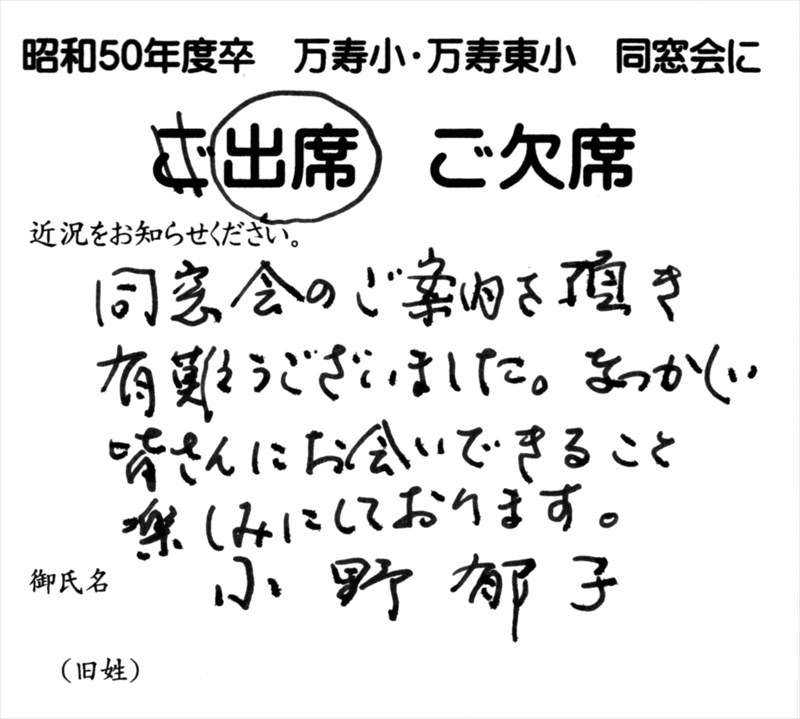 昭和50年度卒 万寿小・万寿東小 同窓会に
ご出席 ご欠席
近況をお知らせください。
同窓会のご案内を頂き
有難うございました。なつかしい
皆さんにお会いできること
楽しみにしております。
御氏名 小野郁子
(旧姓)